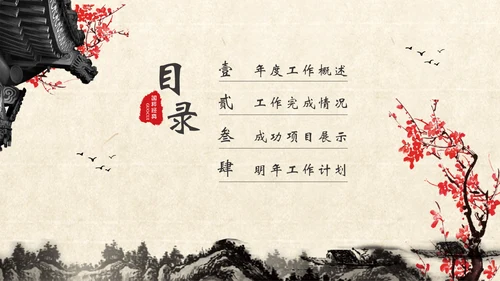 目录
国粹经典
壹 年度工作概述
贰 工作完成情况
叁 成功项目展示
肆 明年工作计划